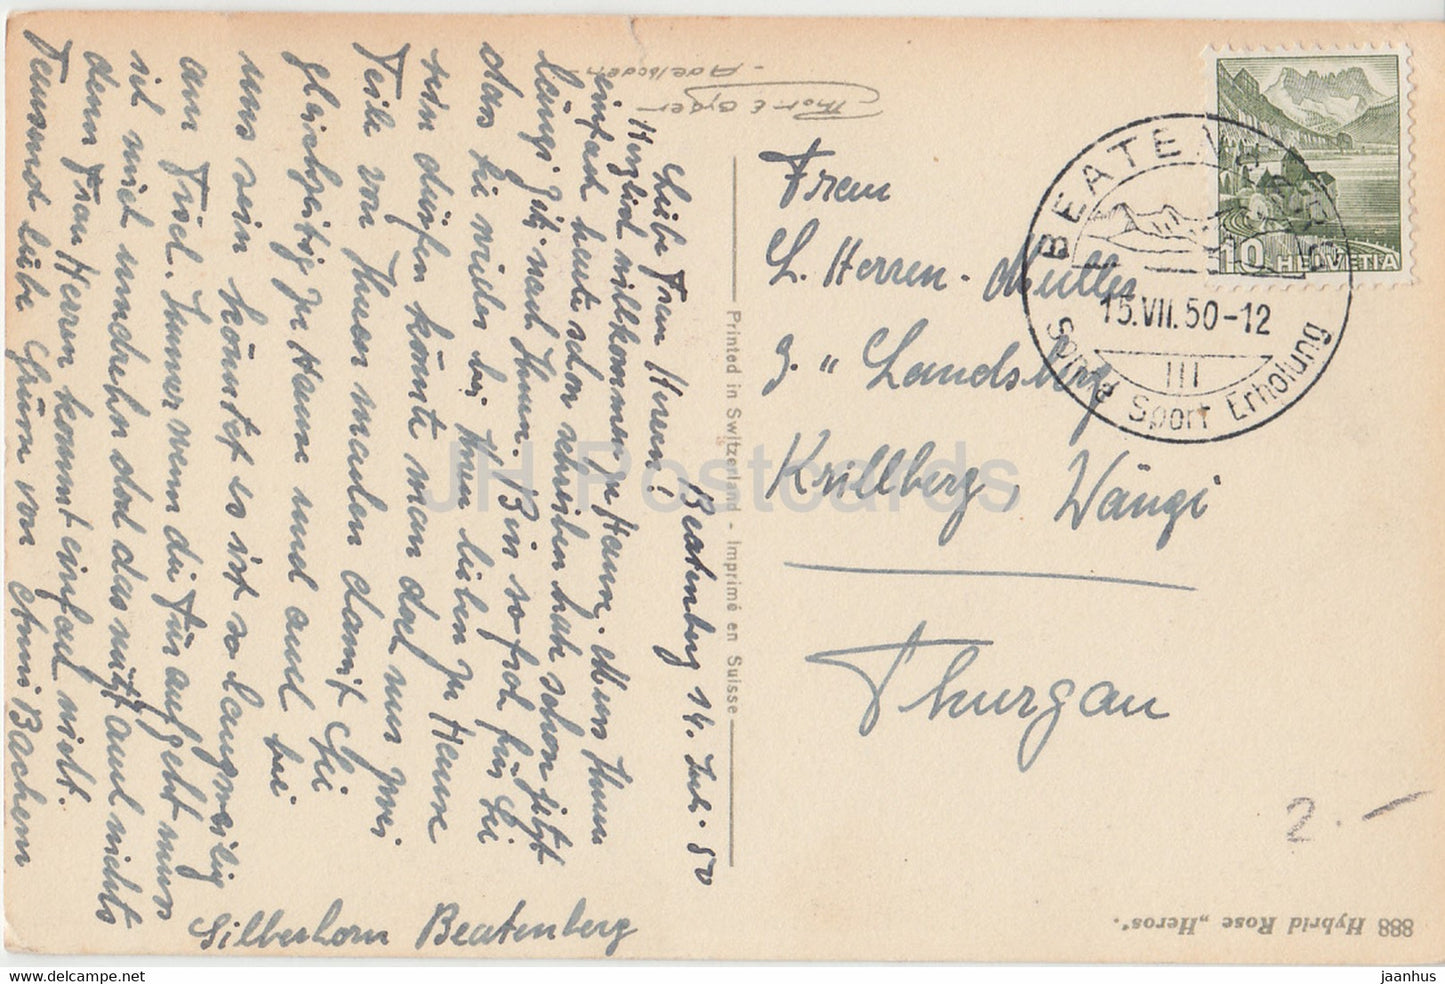 Beatenberg 14. Juli. 50
Liebe Frau Herren!
Herzlich willkommen zu Hause. Muss Ihnen
einfach heute schon schreiben hab schon jetzt
längi Zit. nach Ihnen. Bin so froh für Sie
das sie wieder bei Ihren lieben zu Hause
sein dürfen könnte man doch nur zwei
Teile von Ihnen machen damit Sie
gleichzeitig zu Hause und auch bei
uns sein könntet es ist so langweilig
am Tisch. Immer wenn die Tür aufgeht muss
ich mich umdrehn doch das nützt auch nichts
denn Frau Herren kommt einfach nicht.
Tausend liebe Grüsse von Anni Bachem
Silberhorn Beatenberg
Thor E Gyger
- Adelboden
Printed in Switzerland - Imprimé en Suisse
Frau
L. Herren-Müller
z. "Landsberg
Krillberg, Wängi
Thurgau
BEATENBERG
15.VII.50-12
III
Sonne Sport Erholung
10 HELVETIA
2.-
888 Hybrid Rose „Heros".
JH Postcards
www.delcampe.net
jaanhus